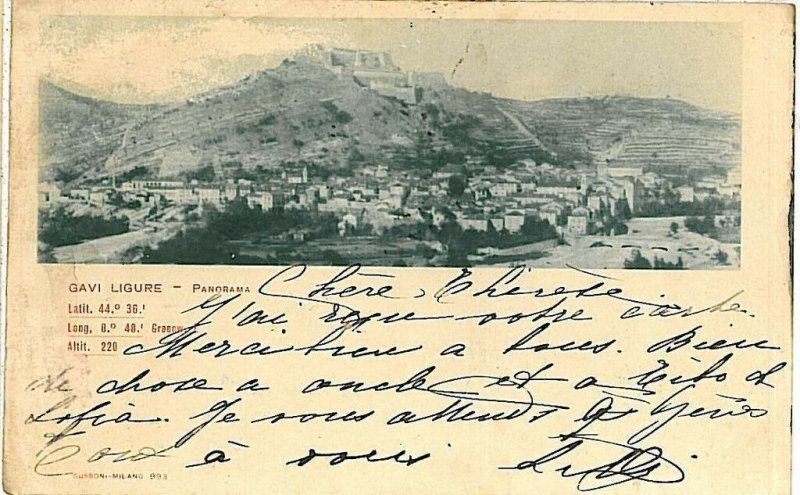 GAVI LIGURE - PANORAMA
Latit. 44.° 36.'
Long. 8.° 48.' Greenw.
Altit. 220
Chère Thérèse
J'ai reçu votre carte.
Merci bien a tous. Bien
de chose a oncle et a Tito et
Sofia. Je vous attends à Gênes
Tout à vous
MILANO 993